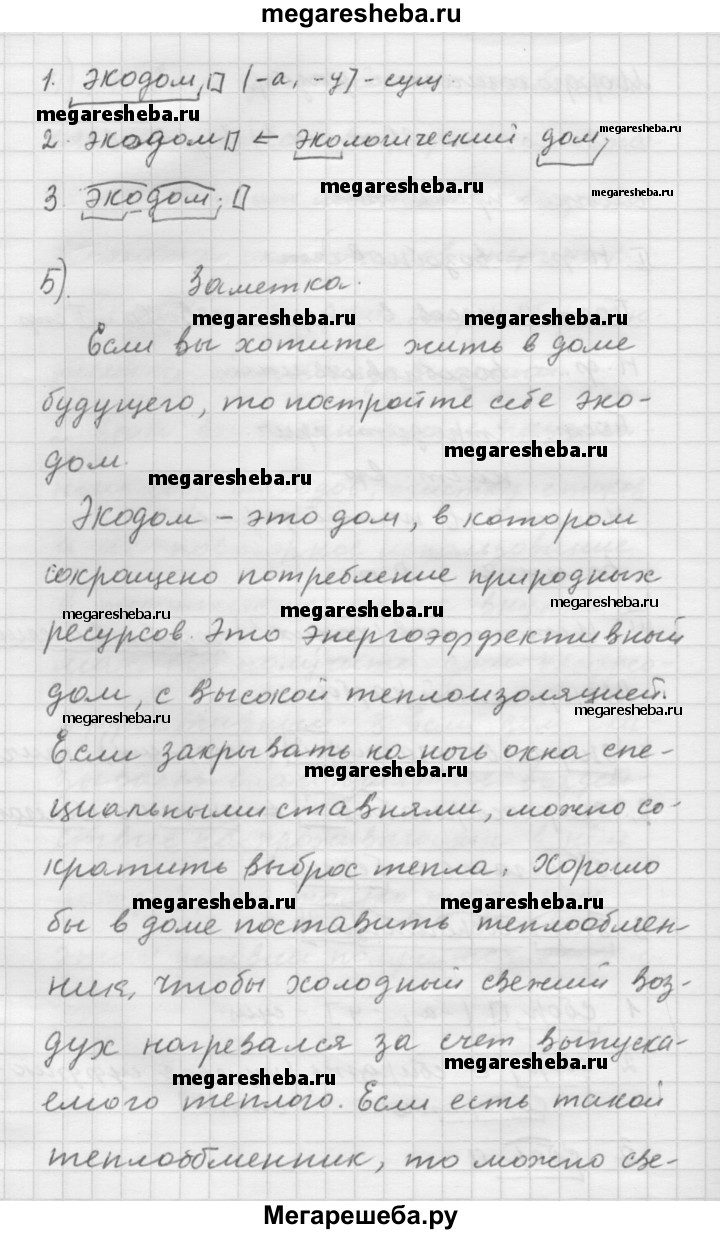 megaresheba.ru
1. экодом, □ (-а, -у) - сущ.
megaresheba.ru
megaresheba.ru
2. экодом □ ← экологический дом,
megaresheba.ru
megaresheba.ru
3. экодом; □
5). Заметка.
megaresheba.ru megaresheba.ru
Если вы хотите жить в доме
будущего, то постройте себе эко-
megaresheba.ru
дом.
megaresheba.ru
Экодом – это дом, в котором
сокращено потребление природных
megaresheba.ru megaresheba.ru megaresheba.ru
ресурсов. Это энергоэффективный
дом, с высокой теплоизоляцией.
megaresheba.ru megaresheba.ru
Если закрывать на ночь окна спе-
megaresheba.ru
циальными ставнями, можно со-
кратить выброс тепла. Хорошо
megaresheba.ru megaresheba.ru
бы в доме поставить теплообмен-
ник, чтобы холодный свежий воз-
дух нагревался за счет выпуска-
megaresheba.ru megaresheba.ru
емого теплого. Если есть такой
теплообменник, то можно све-
Мегарешеба.ру